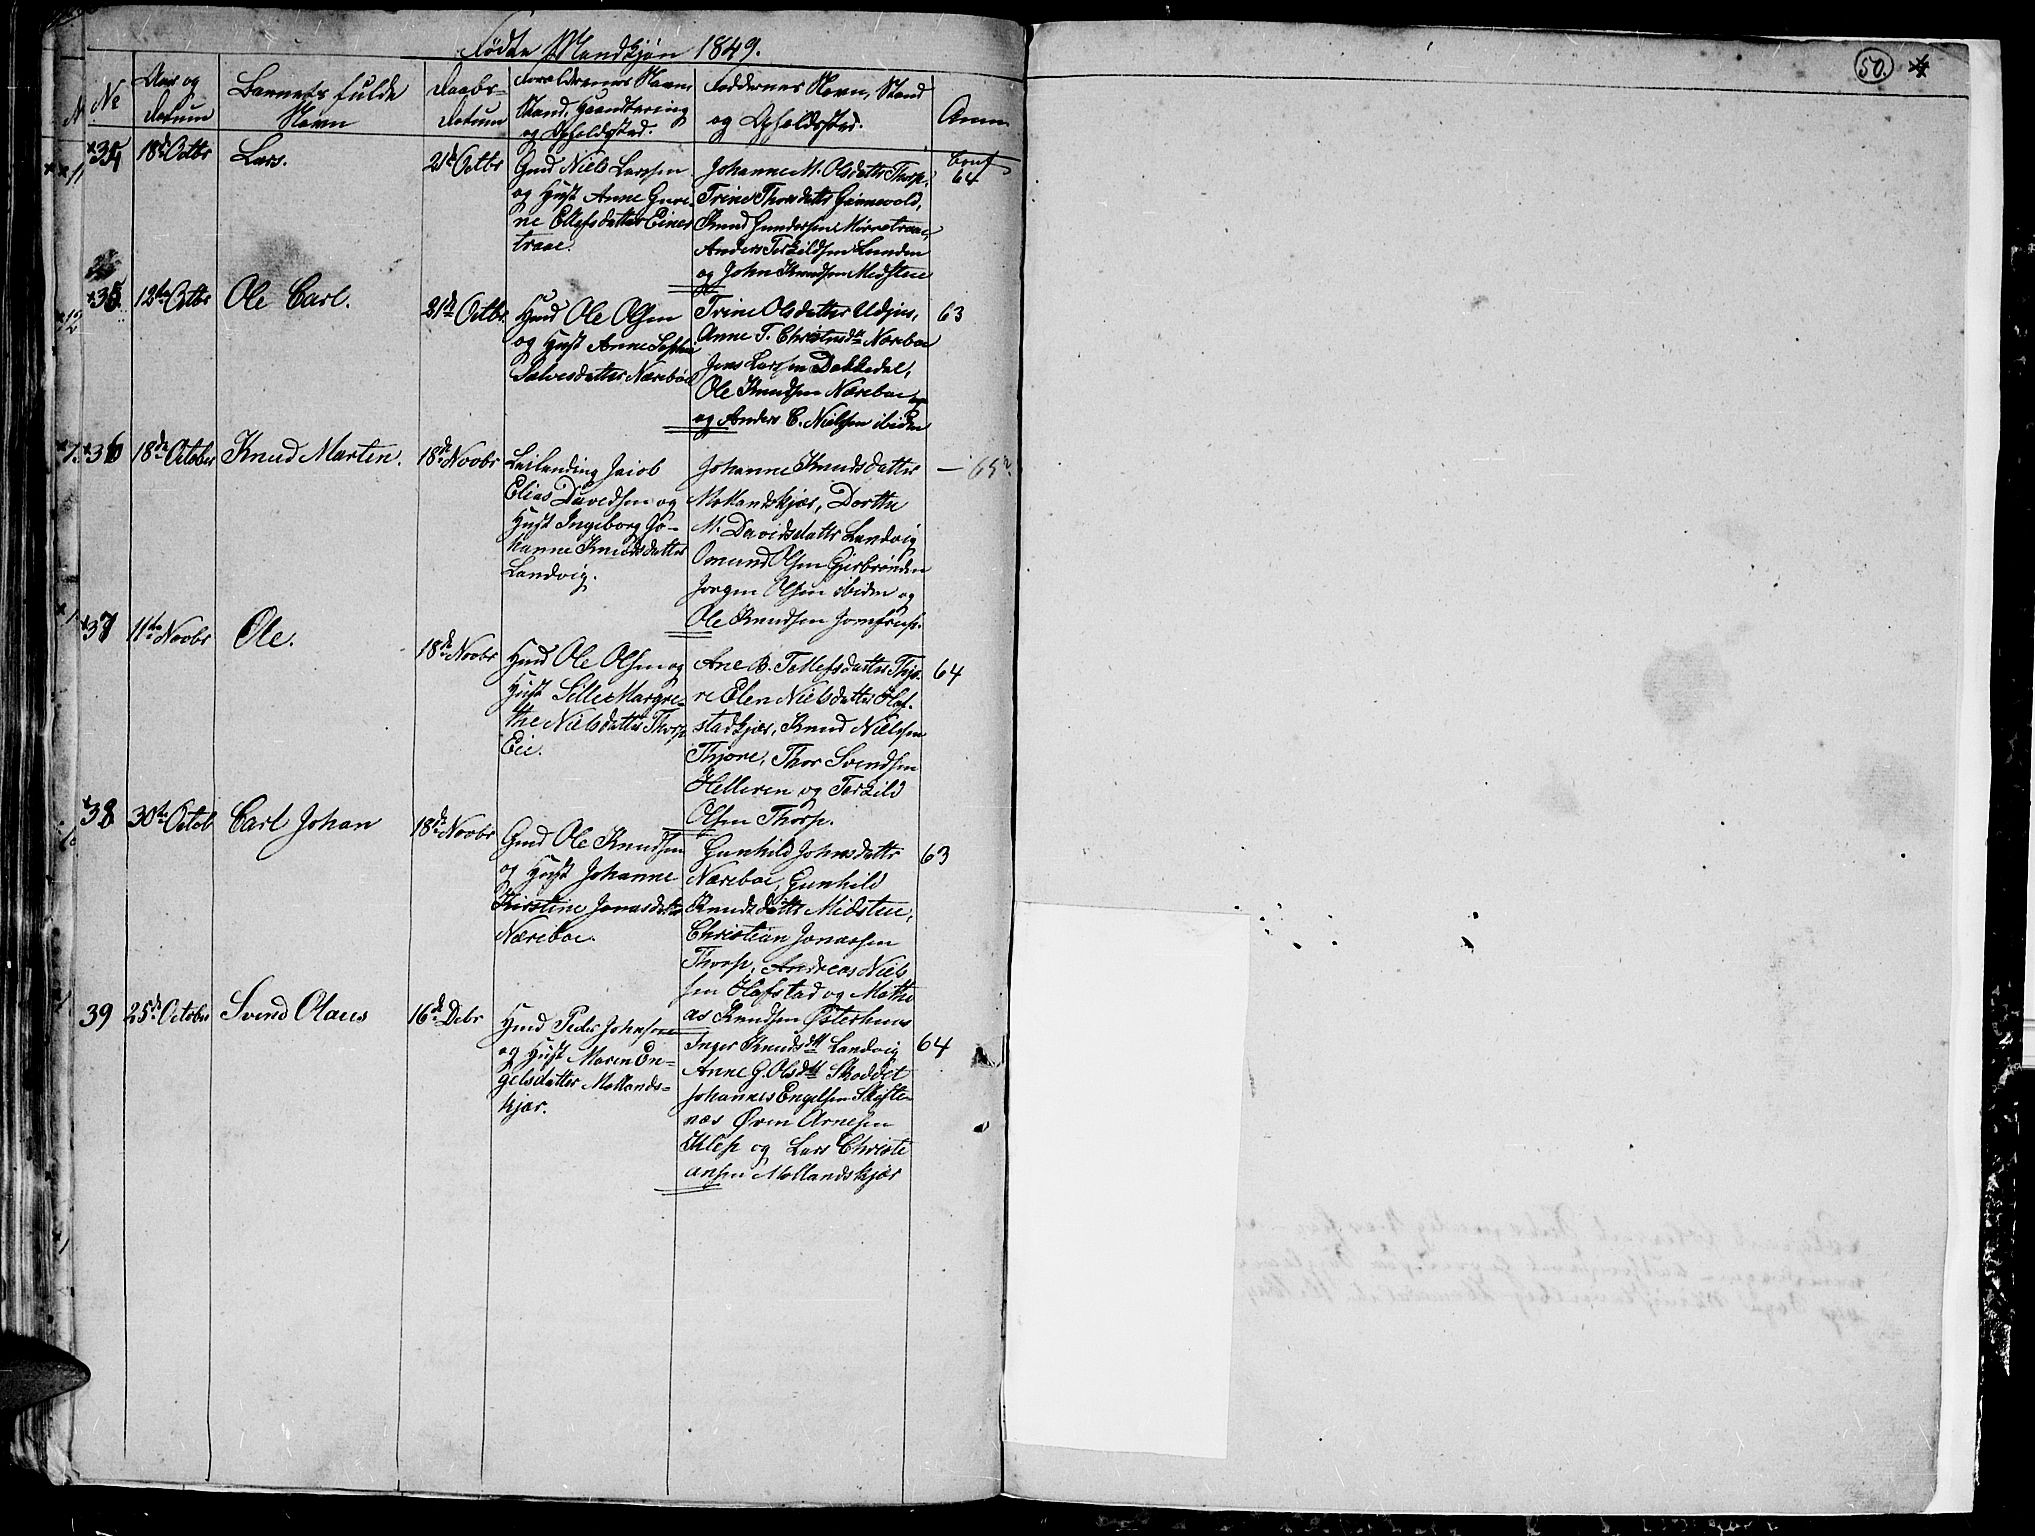 Fødte Mandkjøn 1849.
50.
No
Aar og
Datum
Barnets fulde
Navn
Daabs-
Datum
Forældrenes Navn,
Stand, Haandtering
og Opholdssted.
Faddernes Navn, Stand
og Opholdssted.
Anm
34
18de Octbr
Lars.
21de Octbr
Gmd Niels Larssen
og Hust Anne Guri-
ne Ellefsdatter Einer-
traae.
Johanne M. Olsdatter Thorp,
Trine Thorsdatter Grønevold,
Knud Gundersen Mørretraae,
Anders Terkildsen Lunden
og John Knudsen Midstue
Conf
64
35
12te Octbr
Ole Carl.
21de Octbr
Hmd Ole Olsen
og Hust Anne Sophie
Salvesdatter Nærebøe
Trine Olsdatter Udjus,
Anne T. Christensdtr Nærebøe
Jens Larsen Dokkedal,
Ole Knudsen Nærebøe
og Anders C. Nielsen ibiden
63
36
18de October
Knud Martin.
18de Novbr
Leilending Jacob
Elias Davedsen og
Hust Ingeborg Jo-
hanne Knudsdatter
Landvig.
Johanne Knudsdatter
Mollandskjær, Dorthe
M. Davidsdatter Landvig
Omund Olsen Gjerbrønden
Jørgen Olsen ibiden og
Ole Knudsen Jomfrup.
— 65
37
11te Novbr
Ole.
18de Novbr
Hmd Ole Olsen og
Hust Sille Margre-
the Nielsdatter Thorp
Eie.
Ane B. Tellefsdatter Thjo-
re Elen Nielsdatter Haf-
stadkjær, Knud Nielsen
Thjore, Thor Svendsen
Helleren og Terkild
Olsen Thorp.
64
38
30te Octob
Carl Johan
18de Novbr
Gmd Ole Knudsen
og Hust Johanne
Kirstine Jonasdatter
Nærebøe.
Gunhild Johnsdatter
Nærebøe, Gunhild
Knudsdatter Midstue,
Christian Jonassen
Thorp, Andreas Niel-
sen Hafstad og Mathi-
as Knudsen Østerhuus
63
39
25de October
Svend Olaus
16de Debr
Hmd Peder Johnsen
og Hust Maren En-
gelsdatter Mollands-
kjær.
Inger Knudsdtt Landvig
Anne G. Olsdtt Skoddet
Johannes Engelsen Skifte-
næs Øven Arnesen
Klep og Lars Christi
ansen Mollandskjær
64